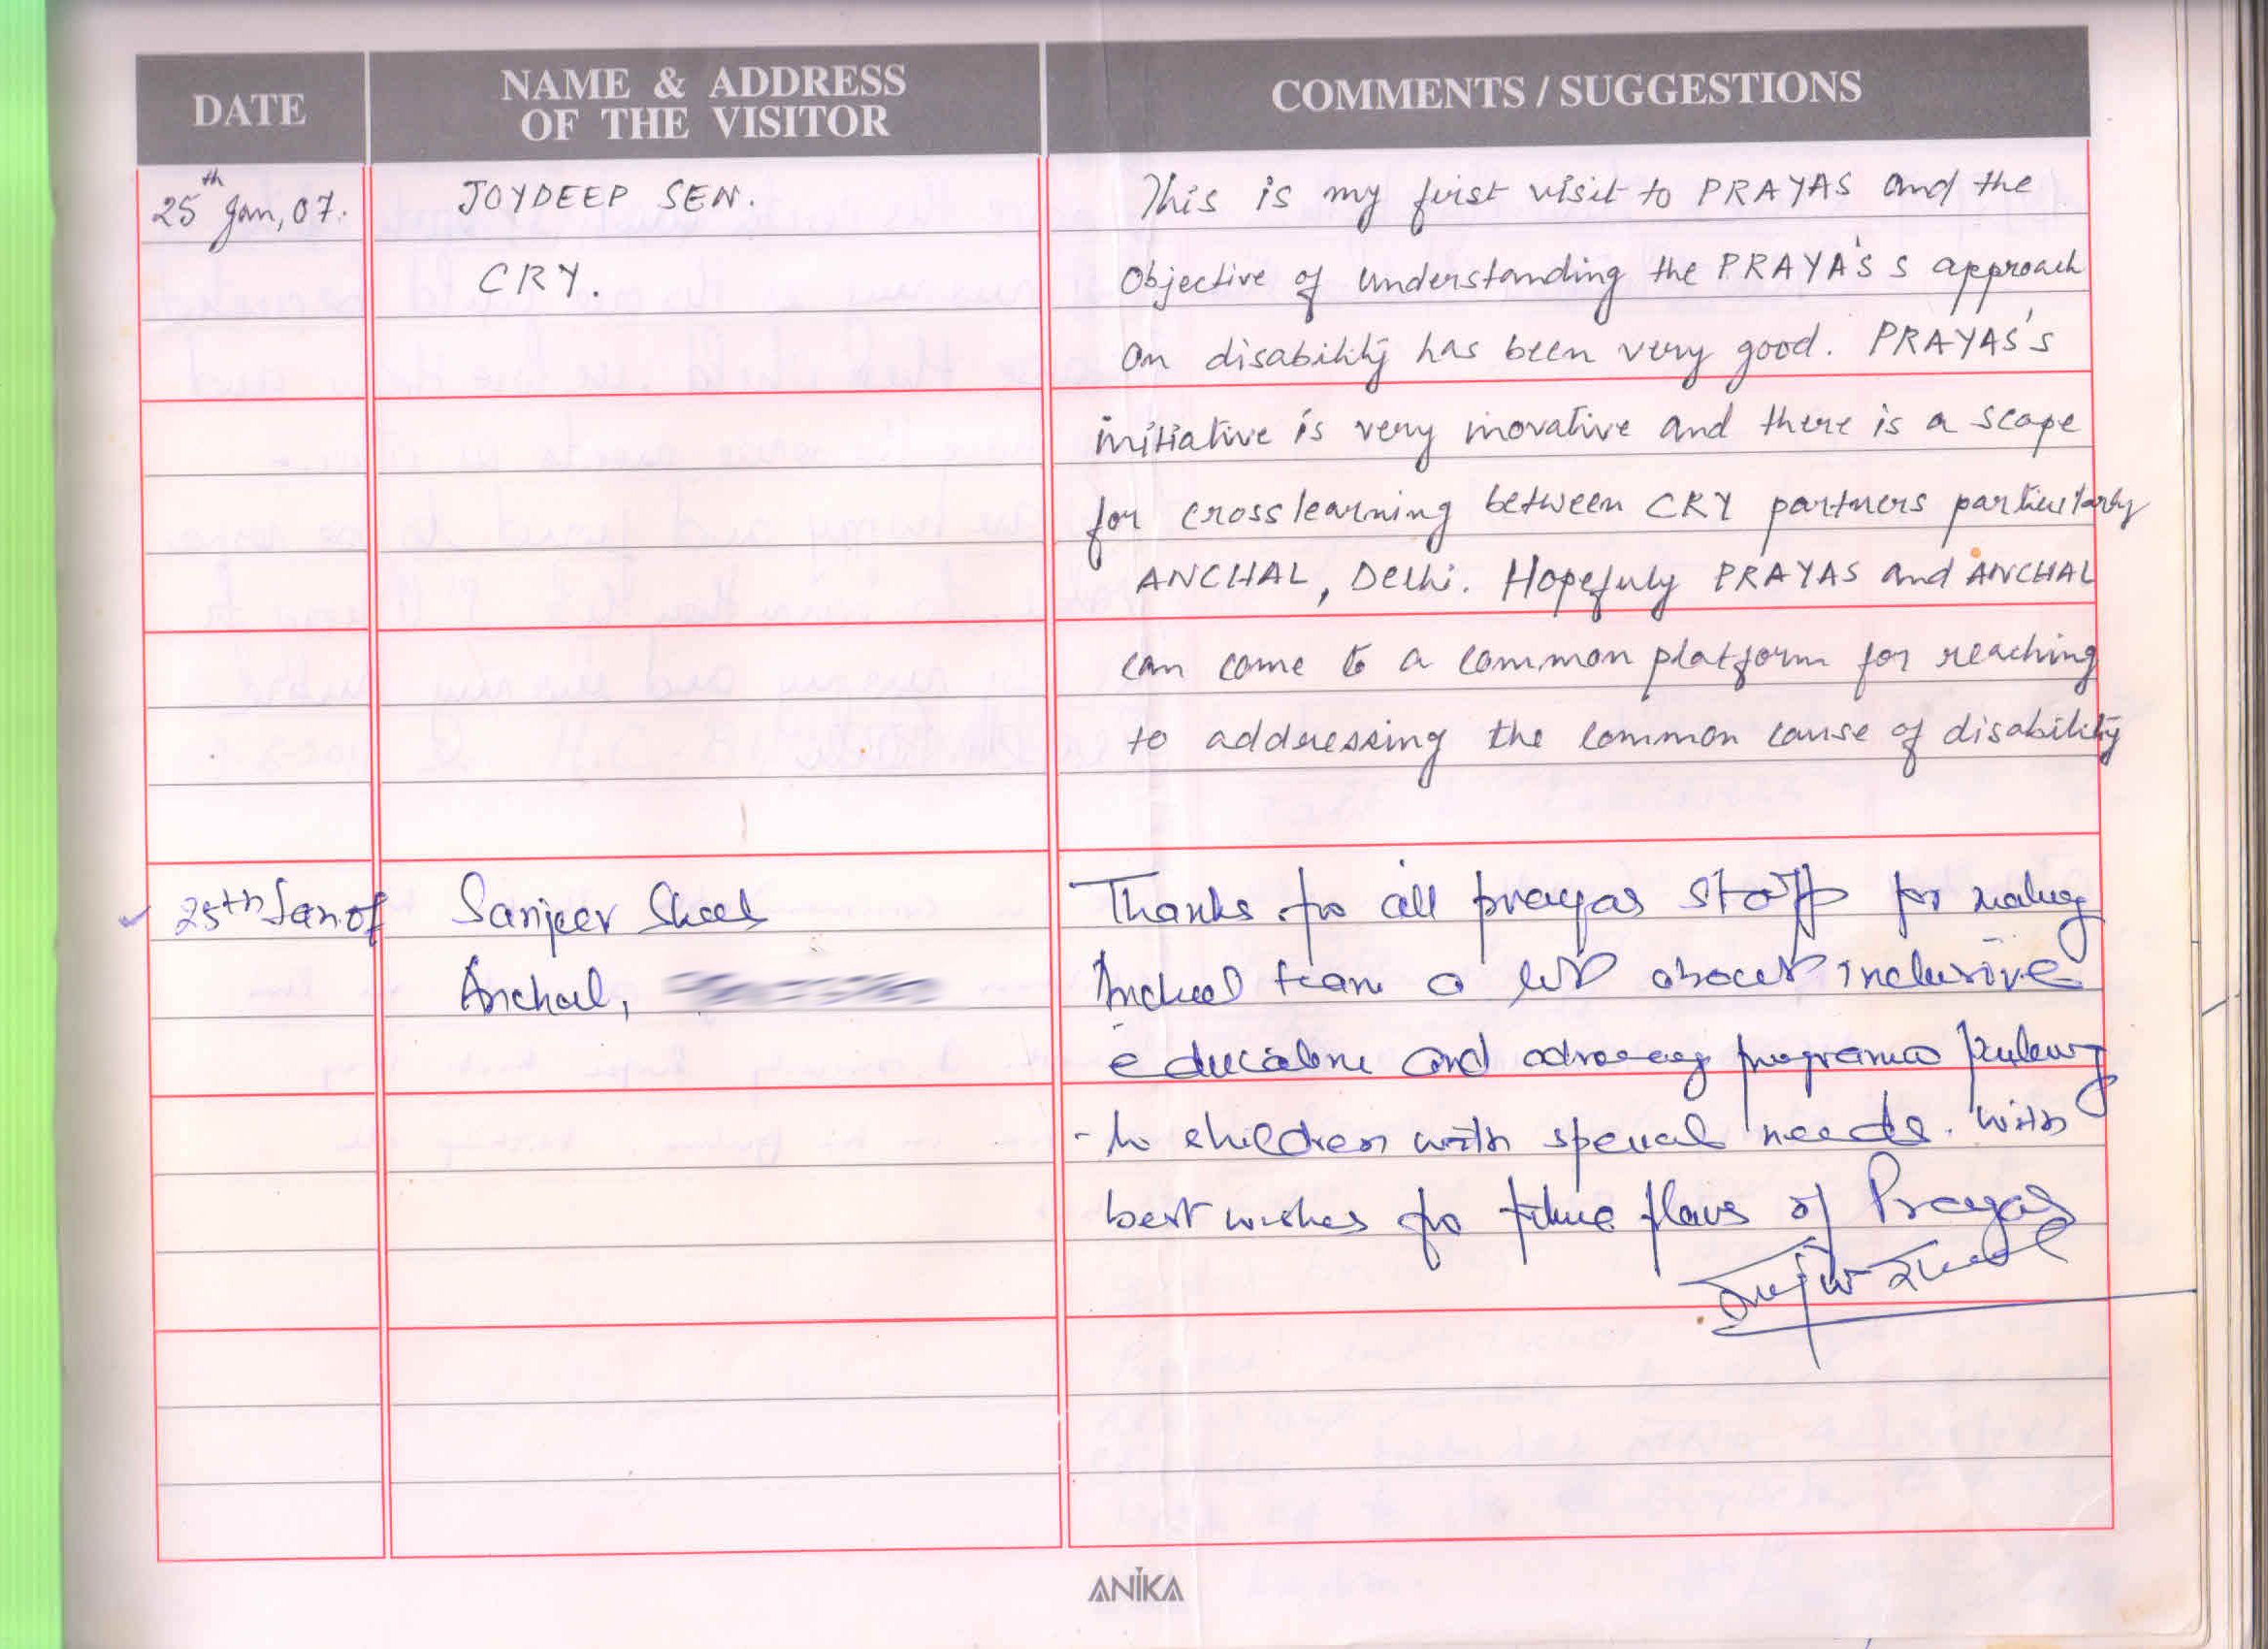 DATE
NAME & ADDRESS OF THE VISITOR
COMMENTS / SUGGESTIONS
25th Jan, 07.
JOYDEEP SEN.
CRY.
This is my first visit to PRAYAS and the
Objective of understanding the PRAYA'S s approach
on disability has been very good. PRAYAS's
initiative is very inovative and there is a scope
for cross learning between CRY partners particularly
ANCHAL, Delhi. Hopefuly PRAYAS and ANCHAL
can come to a common platform for reaching
to addressing the common cause of disability
25th Jan 07
Sanjeev
Anchal,
Thanks for all prayas staff for
Anchal team a lot about inclusive
education and advocacy programes
to children with special needs. With
best wishes for future plans of Prayas
ANIKA